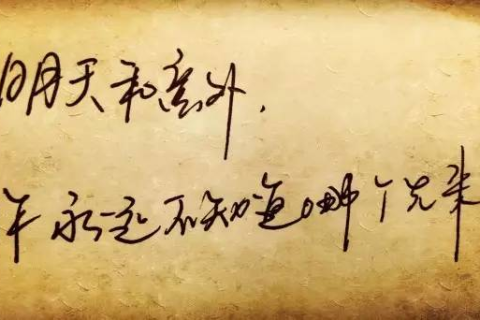 明天和意外,
你永远不知道哪个先来